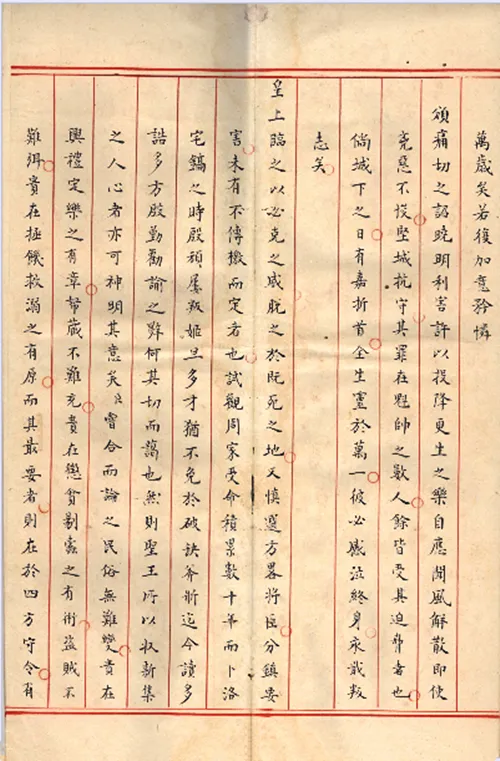 萬歲矣若復加意矜憐
頒痛切之詔曉明利害許以投降更生之樂自應聞風解散即使
兇惡不悛堅城抗守其罪在魁帥之數人餘皆受其迫脅者也
倘城下之日有嘉折首全生靈於萬一彼必感泣終身永戢叛
志矣
皇上臨之以必克之威脫之於既死之地又慎選方畧將臣分鎮要
害未有不傳檄而定者也試觀周家受命積累數十年而卜洛
宅鎬之時殷頑屢叛姬旦多才猶不免於破缺斧斨迄今讀多
誥多方殷勤勸諭之辭何其切而藹也然則聖王所以收新集
之人心者亦可神明其意矣臣嘗合而論之民俗無難變貴在
興禮定樂之有章帑藏不難充貴在懲貪剔蠹之有術盜賊不
難弭貴在拯饑救溺之有原而其最要者則在於四方守令有